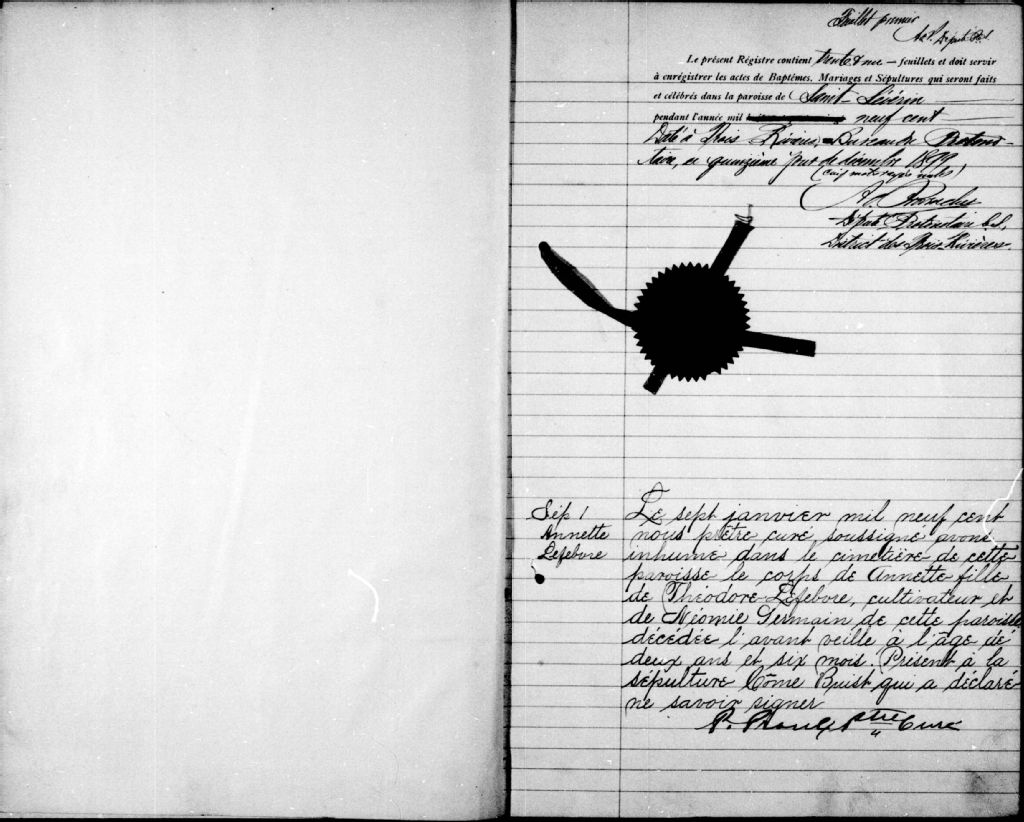 Feuillet premier
Dépt. P.C.S.
Le présent Régistre contient trente & une — feuillets et doit servir
à enrégistrer les actes de Baptêmes, Mariages et Sépultures qui seront faits
et célébrés dans la paroisse de Saint-Sévérin
pendant l'année mil neuf cent
Daté à Trois Rivières, Bureau du Protono-
taire, ce quinzième jour de décembre 1899
(cinq mots rayés nuls)
Député Protonotaire C.S.
District des Trois Rivières.
Sép 1
Annette
Lefebvre
Le sept janvier mil neuf cent
nous prêtre curé, soussigné avons
inhumé dans le cimetière de cette
paroisse le corps de Annette fille
de Théodore Lefebvre, cultivateur et
de Néomie Germain de cette paroisse
décédée l'avant veille à l'âge de
deux ans et six mois. Présent à la
sépulture Côme Buist qui a déclaré
ne savoir signer
Ptre Curé